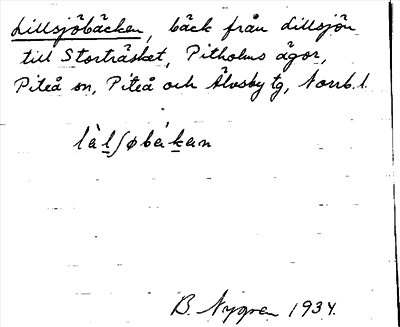 Lillsjöbäcken, bäck från Lillsjön
till Storträsket, Pitholms ägor,
Piteå sn, Piteå och Älvsby tg, Norrb. l.
lä̀lʃøbákan
B. Nygren 1934.